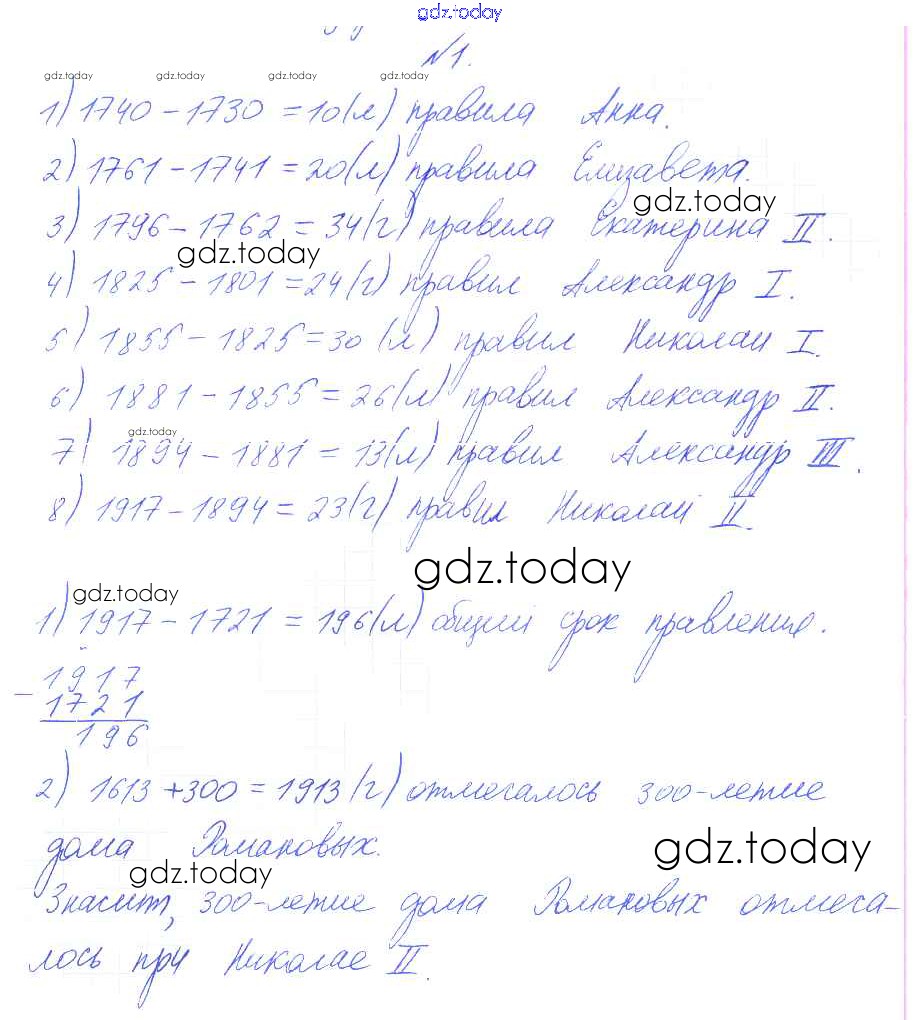 gdz.today
№1.
gdz.today gdz.today gdz.today gdz.today
1) 1740 - 1730 = 10(л) правила Анна.
2) 1761 - 1741 = 20(л) правила Елизавета.
gdz.today
3) 1796 - 1762 = 34(г) правила Екатерина II.
gdz.today
4) 1825 - 1801 = 24(г) правил Александр I.
5) 1855 - 1825 = 30 (л) правил Николай I.
6) 1881 - 1855 = 26(л) правил Александр II.
gdz.today
7) 1894 - 1881 = 13(л) правил Александр III.
8) 1917 - 1894 = 23(г) правил Николай II.
gdz.today
gdz.today
1) 1917 - 1721 = 196(л) общий срок правления.
1917
-
1721
196
2) 1613 + 300 = 1913(г) отмечалось 300-летие
дома Романовых.
gdz.today
gdz.today
Значит, 300-летие дома Романовых отмеча-
лось при Николае II.